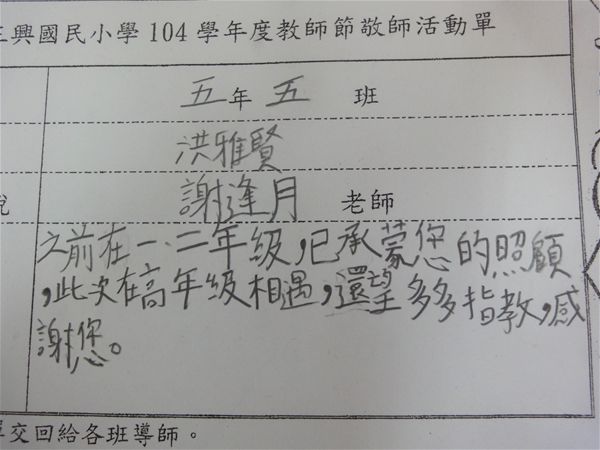 三興國民小學 104 學年度教師節敬師活動單
五年五 班
洪雅賢
說 謝逢月 老師
之前在一、二年級,已承蒙您的照顧
,此次在高年級相遇,還望多多指教,感
謝您。
交回給各班導師。